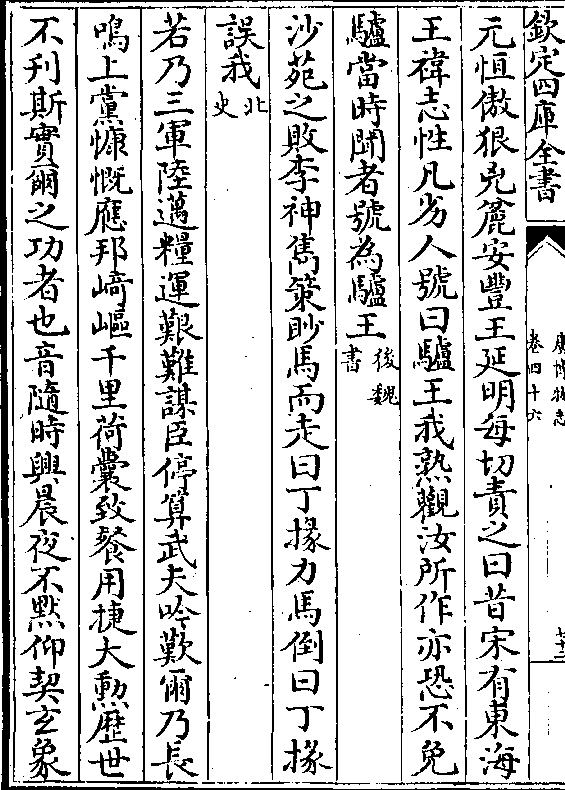 欽定四庫全書
廣博物志
卷四十六
元恒傲狠兇麄安豐王延明每切責之曰昔宋有東海
王禕志性凡劣人號曰驢王我熟觀汝所作亦恐不免
驢當時聞者號為驢王後魏書
沙苑之敗李神雋策眇馬而走曰丁掾力馬倒曰丁掾
誤我北史
若乃三軍陸邁糧運艱難謀臣停算武夫吟歎爾乃長
鳴上黨慷慨應邦崎嶇千里荷囊致餐用捷大勲歴世
不刋斯實爾之功者也音隨時興晨夜不黙仰契玄象